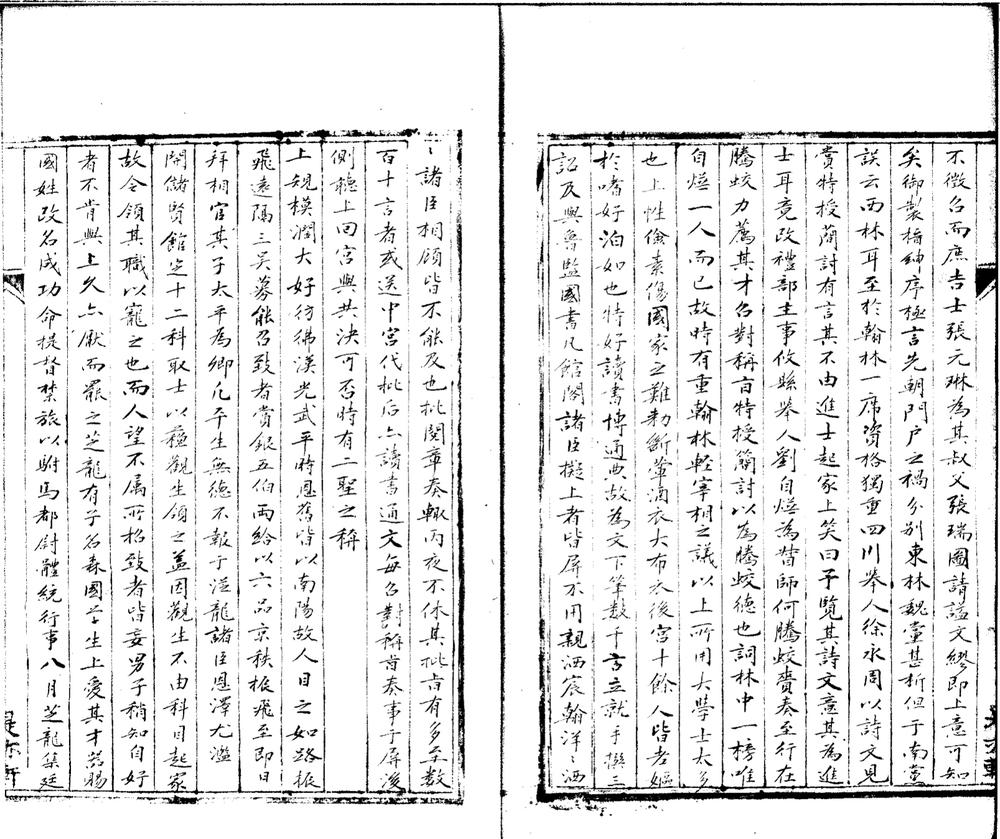 不徵召而庶吉士張元琳為其叔父張瑞圖請諡文繆即上意可知
矣御製搢紳序極言先朝門户之禍分别東林魏黨甚析但于南黨
誤云西林耳至於翰林一席資格獨重四川舉人徐水周以詩文見
賞特授蕳討有言其不由進士起家上笑曰予覽其詩文意其為進
士耳竟改禮部主事攸縣舉人劉自煃為督師何騰蛟賫奏至行在
騰蛟力薦其才召對稱旨特授簡討以為騰蛟德也詞林中一榜唯
自煃一人而已故時有重翰林軽宰相之議以上所用大學士太多
也上性儉素傷國家之難勅斷葷酒衣大布衣後宮十餘人皆老嫗
於嗜好泊如也特好讀書博通典故為文下筆数千言立就手撰三
詔及與魯監國書凡館閣諸臣擬上者皆屏不用親洒宸翰洋〻洒
〻諸臣相顧皆不能及也批閱章奏輙丙夜不休其批旨有多至数
百十言者或送中宮代批后亦讀書通文每召對稱旨奏事于屏後
側聽上回宮與共决可否時有二聖之稱
上規模濶大好彷彿漢光武平時恩舊皆以南陽故人目之如路振
飛遠隔三吴募能召致者賞銀五伯両給以六品京秩振飛至即日
拜相官其子太平為卿凡平生無德不報于從龍諸臣恩澤尤濫
開儲賢館定十二科取士以蘓觀生領之盖因觀生不由科目起家
故令領其職以寵之也而人望不属所招致者皆妄男子稍知自好
者不肯與上久亦厭而罷之芝龍有子名森國學生上愛其才器賜
國姓改名成功命提督禁旅以駙馬都尉體統行事八月芝龍集廷